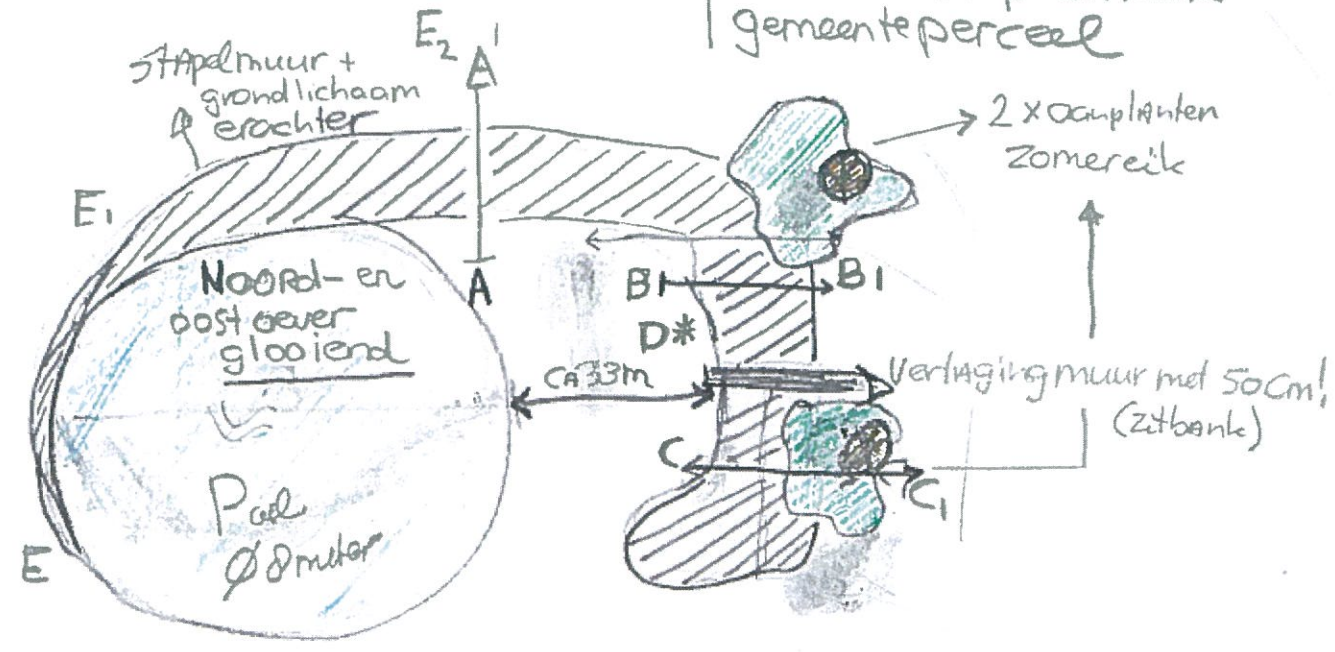 gemeenteperceel
E2
A'
Stapelmuur +
grondlichaam
erachter
2 x aanplanten
Zomereik
E1
Noord- en
oostoever
glooiend
A
B
B1
D*
ca 33m
Verlaging muur met 50cm!
(Zitbank)
C
C1
Poel
Ø 8 meter
E